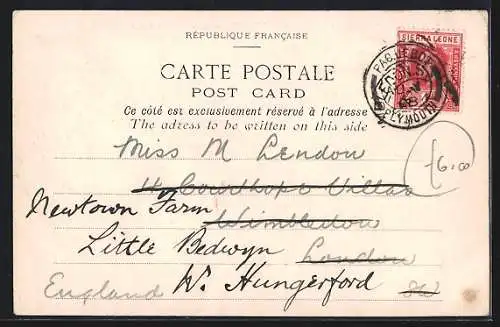 RÉPUBLIQUE FRANÇAISE
SIERRA LEONE
CARTE POSTALE
POST CARD
PAQUEBOT
PLYMOUTH
Ce côté est exclusivement réservé à l'adresse
The adress to be written on this side
Miss M Lendon
£6.00
4 Courthope Villas
Newtown Farm
Wimbledon
Little Bedwyn
London
W. Hungerford
SW
England